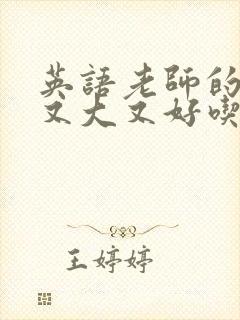 英語老師的
又大又好喫
王婷婷